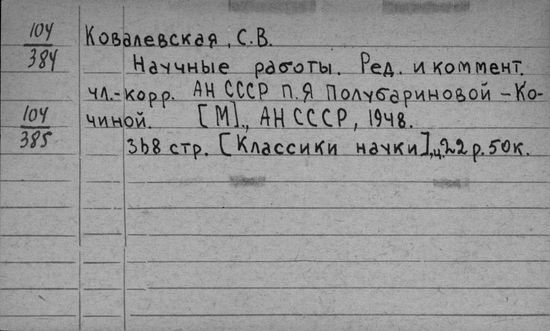 104
384
Ковалевская, С.В.
Научные работы. Ред. и коммент.
чл.-корр. АН СССР П.Я Полубариновой-Ко-
чиной. [М]., АН СССР, 1948.
104
385
368 стр. [Классики науки], ц. 22 р. 50к.